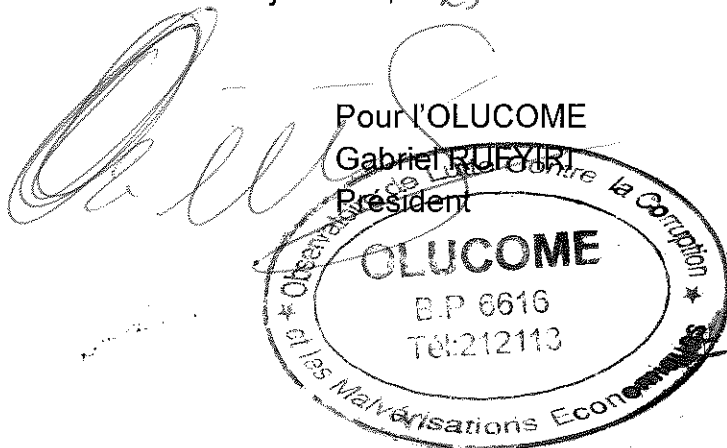 Pour l'OLUCOME
Gabriel RUFYIRI
Président
★ Observatoire de Lutte Contre la Corruption ★
et les Malvérisations Economiques
OLUCOME
B.P 6616
Tél:212113